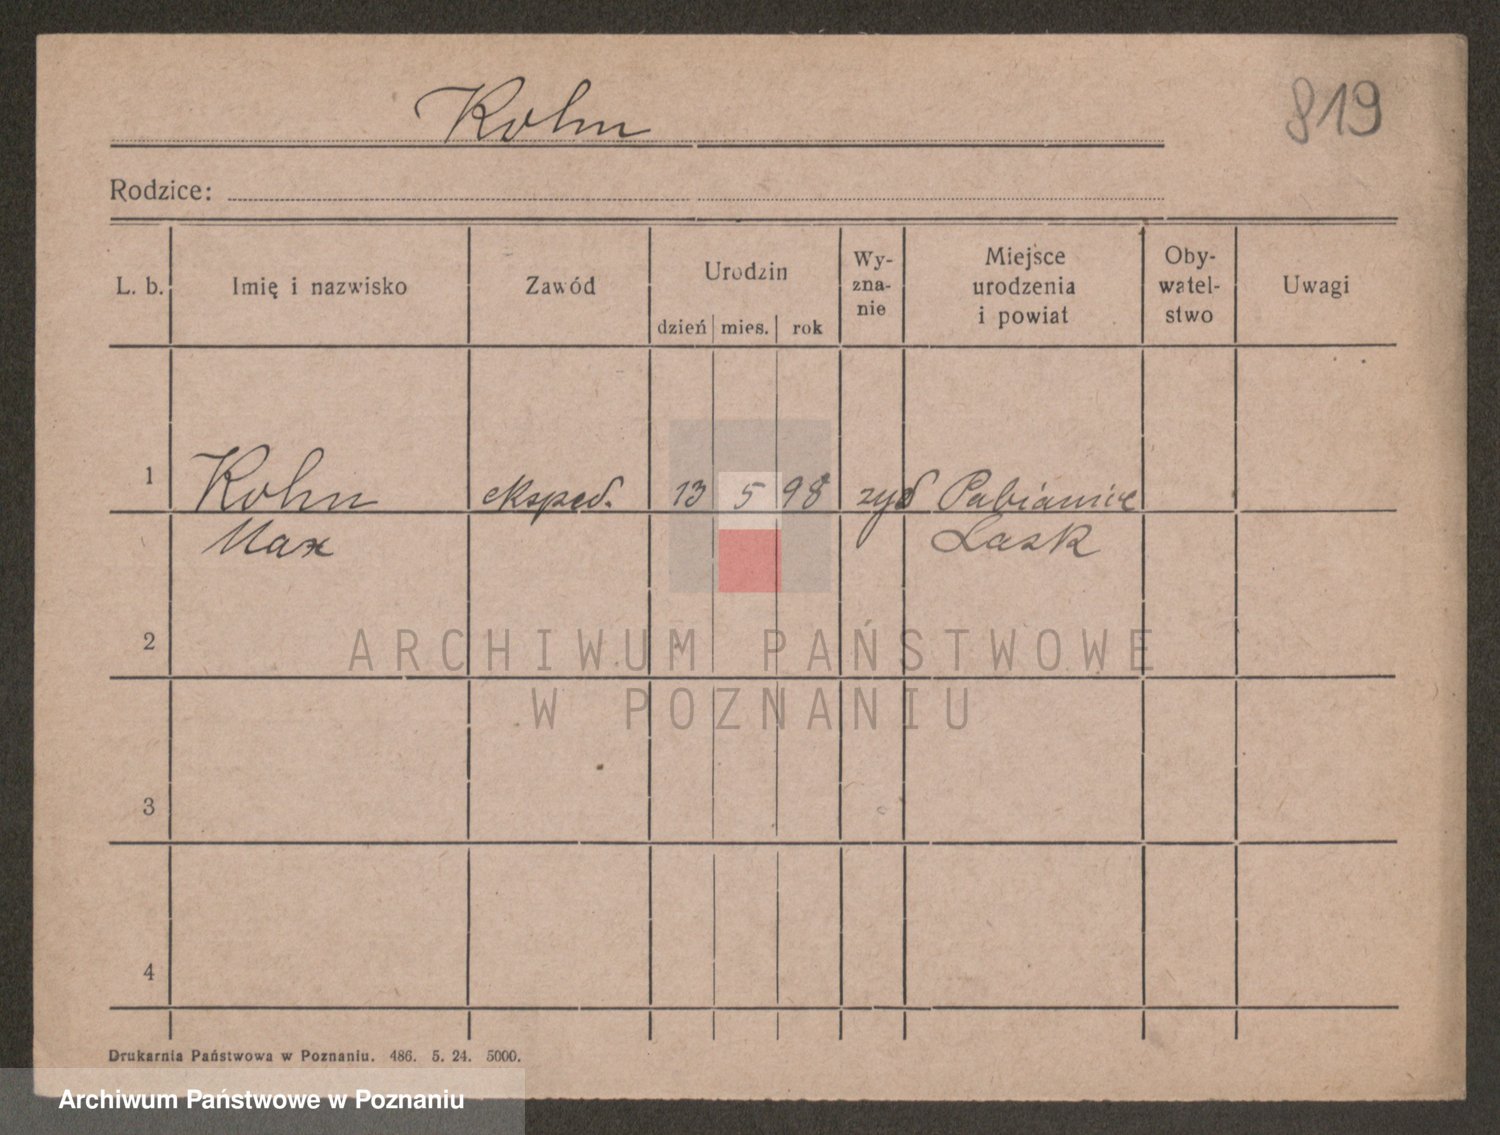 Kohn
819
Rodzice:
L. b.
Imię i nazwisko
Zawód
Urodzin
dzień mies. rok
Wy-
zna-
nie
Miejsce
urodzenia
i powiat
Oby-
watel-
stwo
Uwagi
1 Kohn eksped. 13 5 98 żyd Pabianice
Max Lask
2
3
4
ARCHIWUM PAŃSTWOWE
W POZNANIU
Drukarnia Państwowa w Poznaniu. 486. 5. 24. 5000.
Archiwum Państwowe w Poznaniu